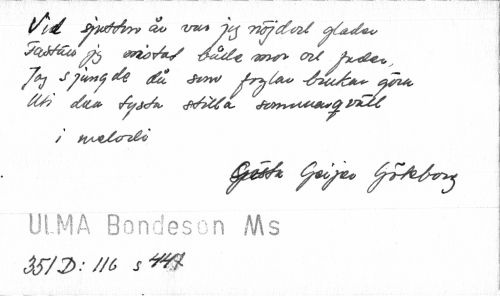 Vid sjutton år var jeg nöjd och glader
Fastän jg mistat både mor och fader,
Jag sjungde då som foglar brukar göra
Uti den tysta stilla sommarqväll
i melodi
Gösta Geijer Göteborg
ULMA Bondeson Ms
351 D: 116 s 447